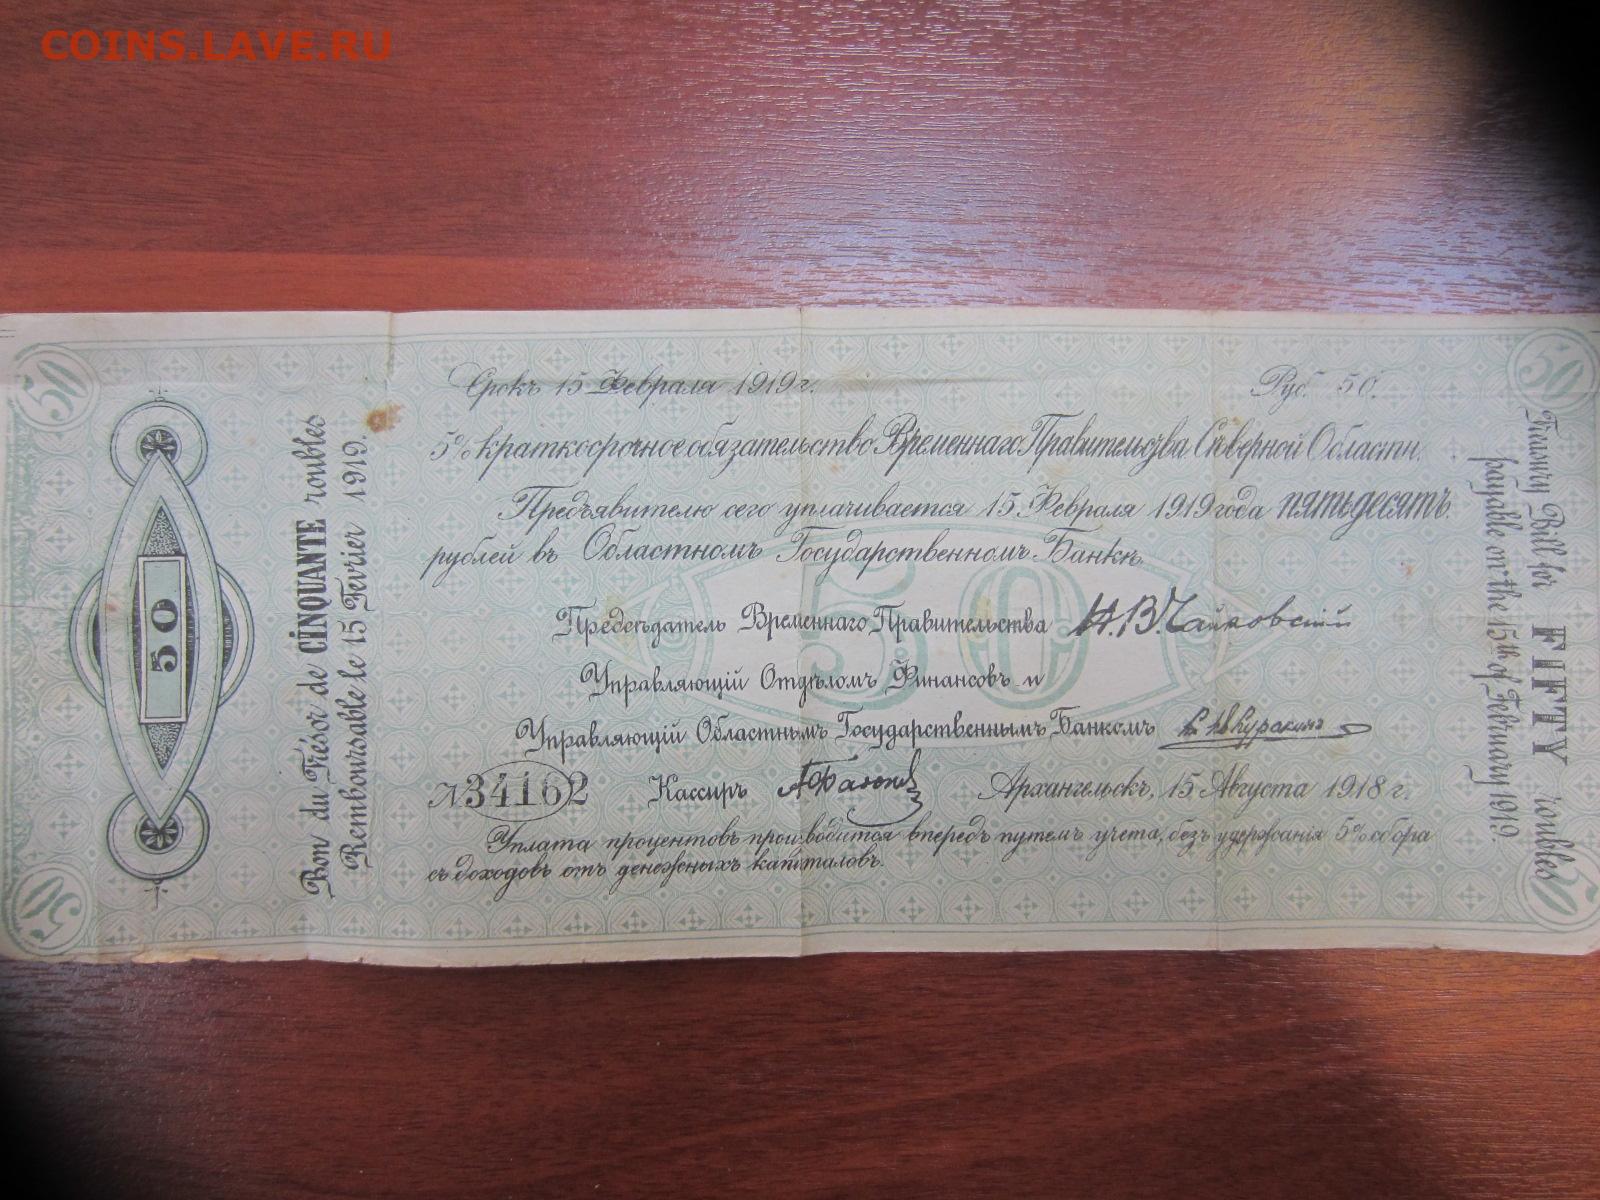 COINS.LAVE.RU
50
50
Срокъ 15 Февраля 1919 г.
Руб. 50.
5% краткосрочное обязательство Временнаго Правительства Сѣверной Области.
Предъявителю сего уплачивается 15 Февраля 1919 года пятьдесятъ
рублей въ Областномъ Государственномъ Банкѣ.
50
Предсѣдатель Временнаго Правительства Н. В. Чайковскій
Управляющій Отдѣломъ Финансовъ и
Управляющій Областнымъ Государственнымъ Банкомъ
№ 34162 Кассиръ Архангельскъ, 15 Августа 1918 г.
Уплата процентовъ производится впередъ путемъ учета, безъ удержанія 5% сбора
съ доходовъ отъ денежныхъ капиталовъ.
50
Bon du Trésor de CINQUANTE roubles
Remboursable le 15 Fevrier 1919.
Treasury Bill for FIFTY roubles
payable on the 15th of February 1919.
50
50